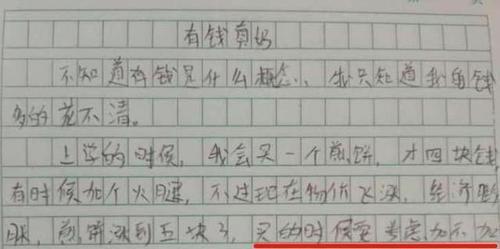 有钱真好
不知道有钱是什么概念、我只知道我的钱
多的花不清。
上学的时候，我会买一个煎饼，才四块钱
有时候加个火腿，不过现在物价飞涨，经济
煎饼涨到五块了，买的时候要考虑加不加